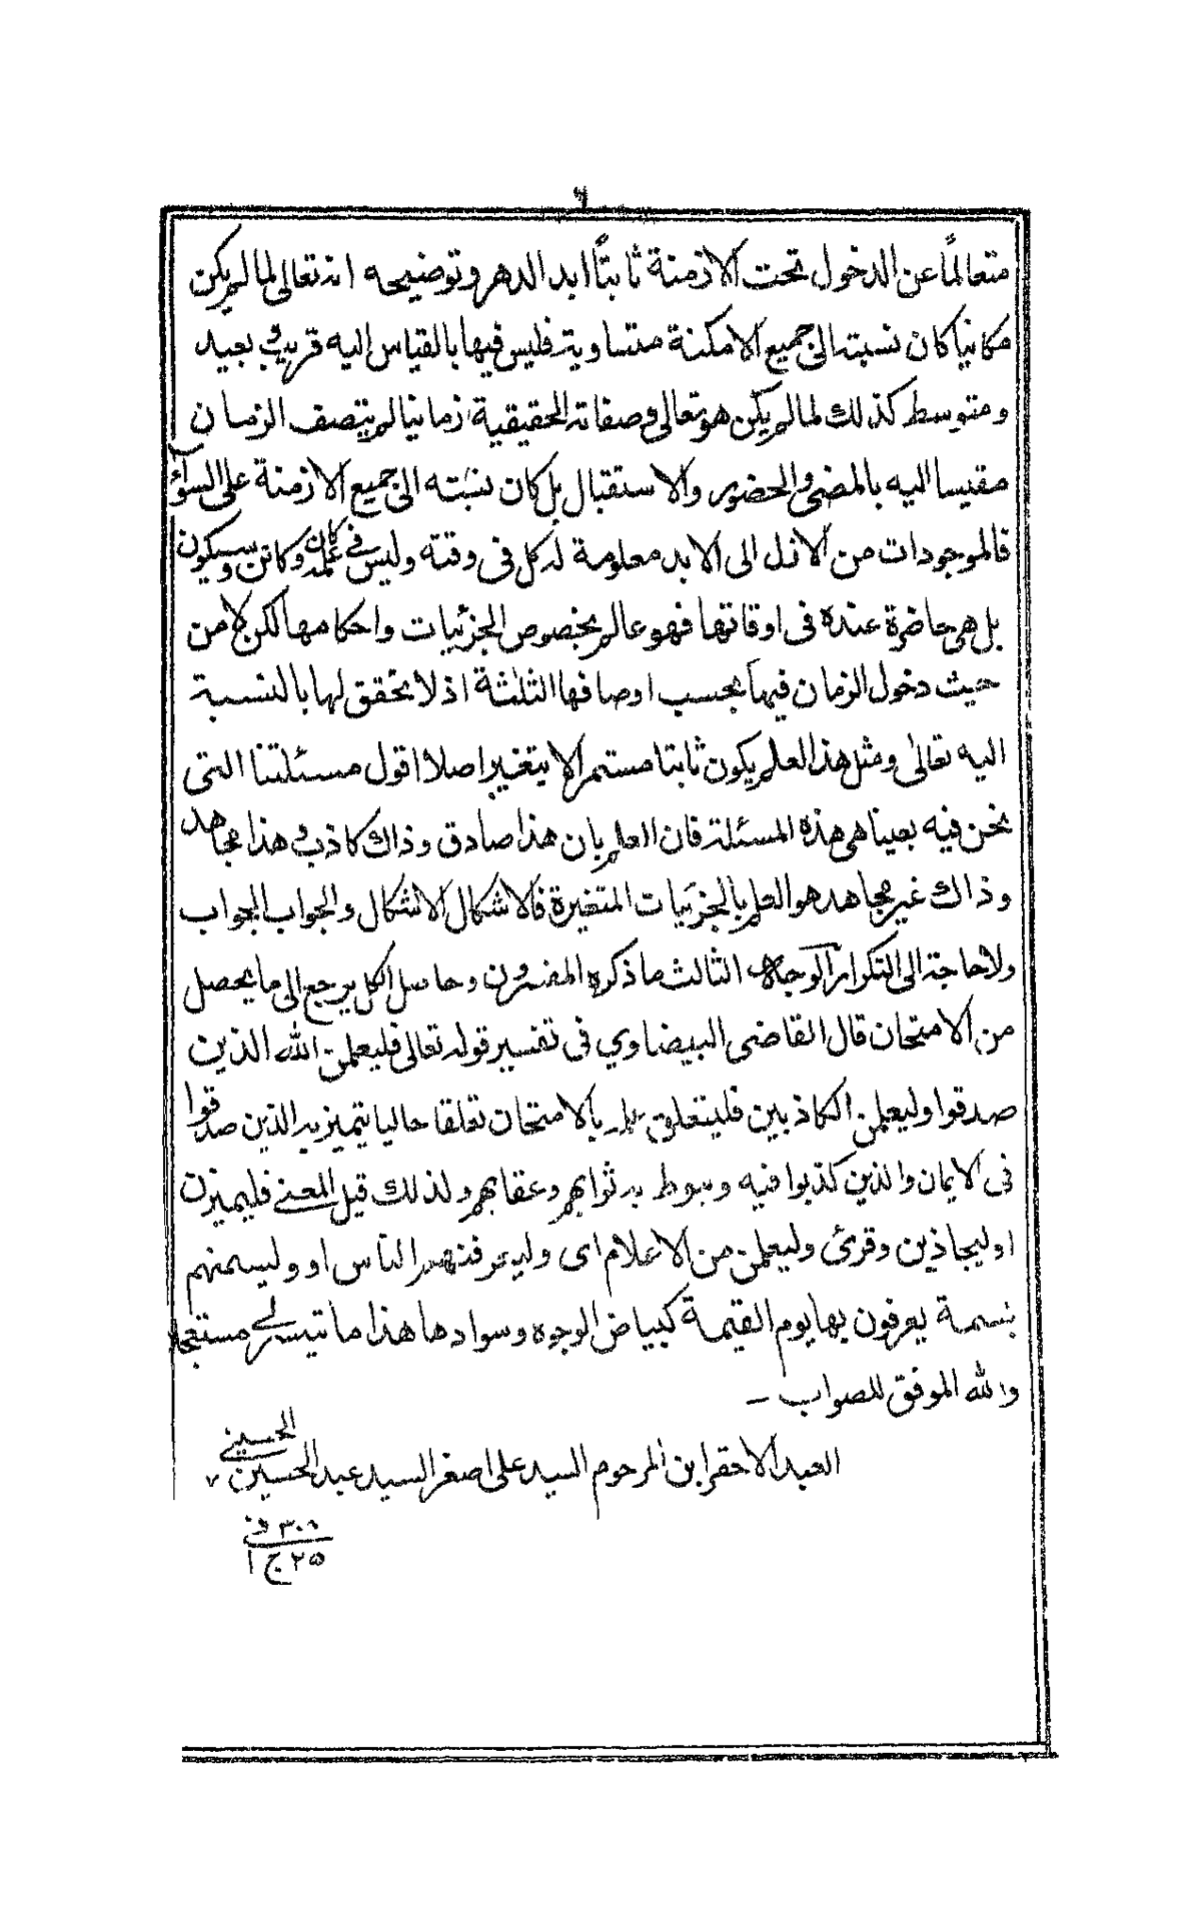 ٦
متعالمًا عن الدخول تحت الازمنة ثابتًا ابد الدهر وتوضيحه انه تعالى لما لم يكن
مكانيا كان نسبته الى جميع الامكنة متساوية فليس فيها بالقياس اليه قريب وبعيد
ومتوسط كذلك لما لم يكن هو تعالى وصفاته الحقيقية زمانيا لم يتصف الزمان
مقيسا اليه بالمضى والحضور والاستقبال بل كان نسبته الى جميع الازمنة على السوآء
فالموجودات من الازل الى الابد معلومة له كل فى وقته وليس فى علمه كان وكائن وسيكون
بل هى حاضرة عنده فى اوقاتها فهو عالم بخصوص الجزئيات واحكامها لكن لا من
حيث دخول الزمان فيها بحسب اوصافها الثلثة اذ لا تحقق لها بالنسبة
اليه تعالى ومثل هذا العلم يكون ثابتا مستمرا لا يتغير اصلا اقول مسئلتنا التى
نحن فيه بعينا هى هذه المسئلة فان العلم بان هذا صادق وذاك كاذب وهذا مجاهد
وذاك غير مجاهد هو العلم بالجزئيات المتغيرة فالاشكال الاشكال والجواب الجواب
ولا حاجة الى التكرار الوجه الثالث ما ذكره المفسرون وحاصل الكل يرجع الى ما يحصل
من الامتحان قال القاضى البيضاوي فى تفسير قوله تعالى فليعلمن الله الذين
صدقوا وليعلمن الكاذبين فليتعلق علمه بالامتحان تعلقا حاليا يتميز به الذين صدقوا
فى الايمان والذين كذبوا فيه وينوط به ثوابهم وعقابهم ولذلك قيل المعنى فليميزن
او ليجاذين وقرئ وليعلمن من الاعلام اى وليعرفنهم الناس او وليسمنهم
بسمة يعرفون بها يوم القيمة كبياض الوجوه وسوادها هذا ما تيسر لى مستعجلا
والله الموفق للصواب ـ
العبد الاحقر ابن المرحوم السيد على اصغر السيد عبد الحسين الحسينى
٢٥ ج ١